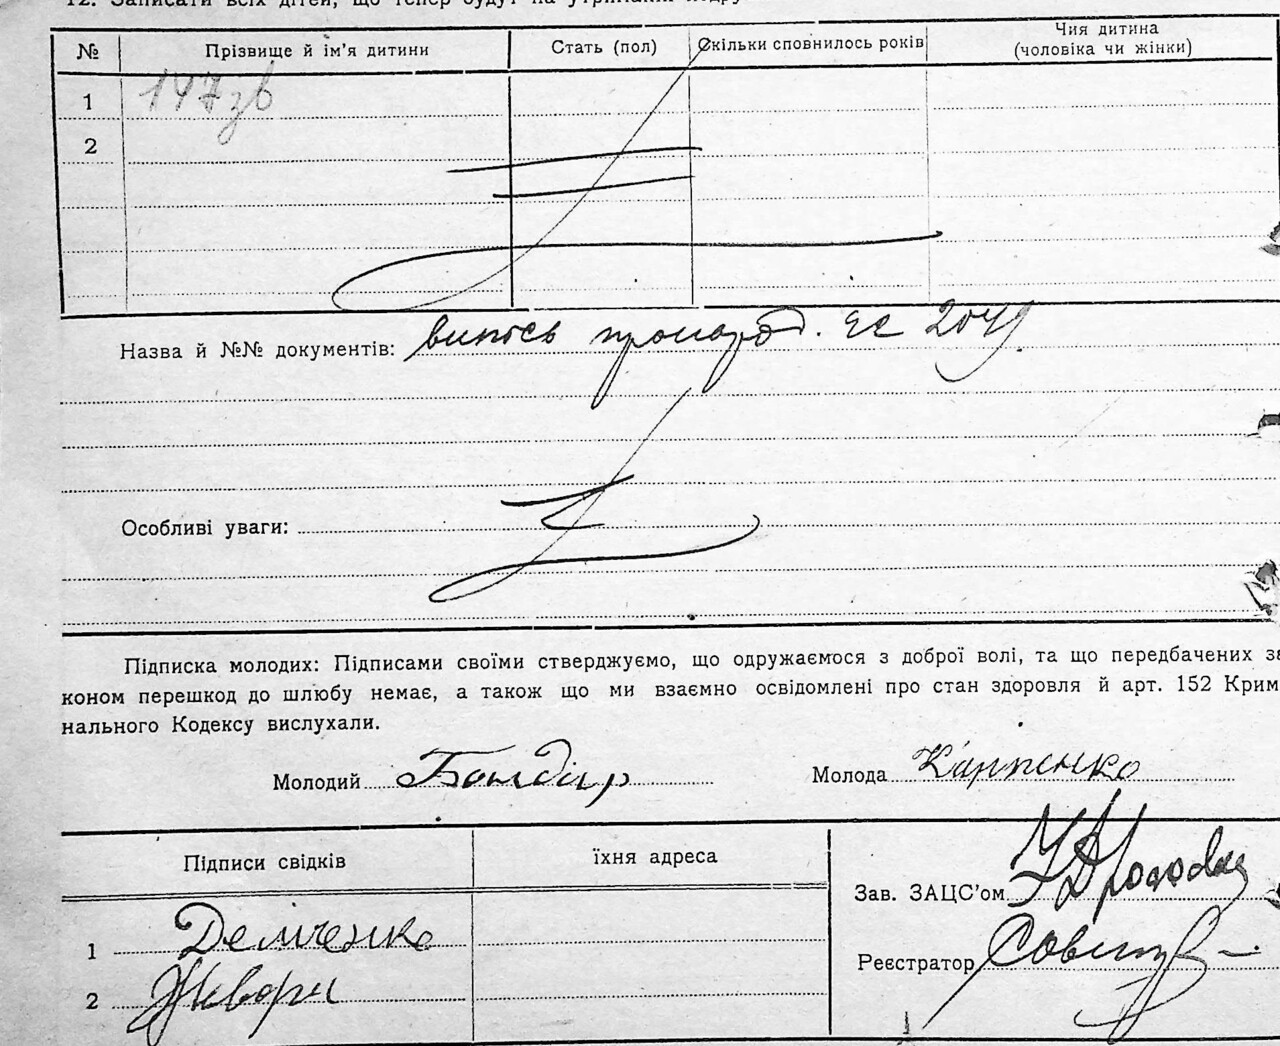 12. Записати всіх дітей, що тепер будут на утриманні подру
№ Прізвище й ім'я дитини Стать (пол) Скільки сповнилось років Чия дитина (чоловіка чи жінки)
1 147 зв
2
Назва й №№ документів: випись 2049
Особливі уваги:
Підписка молодих: Підписами своїми стверджуємо, що одружаємося з доброї волі, та що передбачених за
коном перешкод до шлюбу немає, а також що ми взаємно освідомлені про стан здоровля й арт. 152 Крим
нального Кодексу вислухали.
Молодий Бондар Молода Карпенко
Підписи свідків їхня адреса
Зав. ЗАЦС'ом
1 Демченко
Реєстратор
2